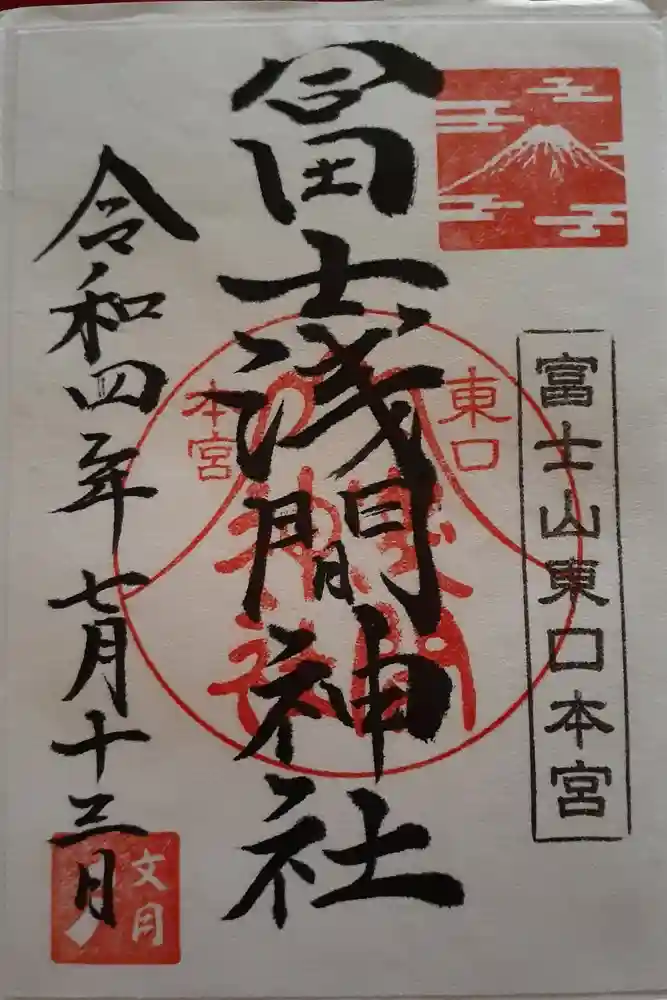 富士山東口本宮
冨士浅間神社
東口
本宮
令和四年七月十三日
文月